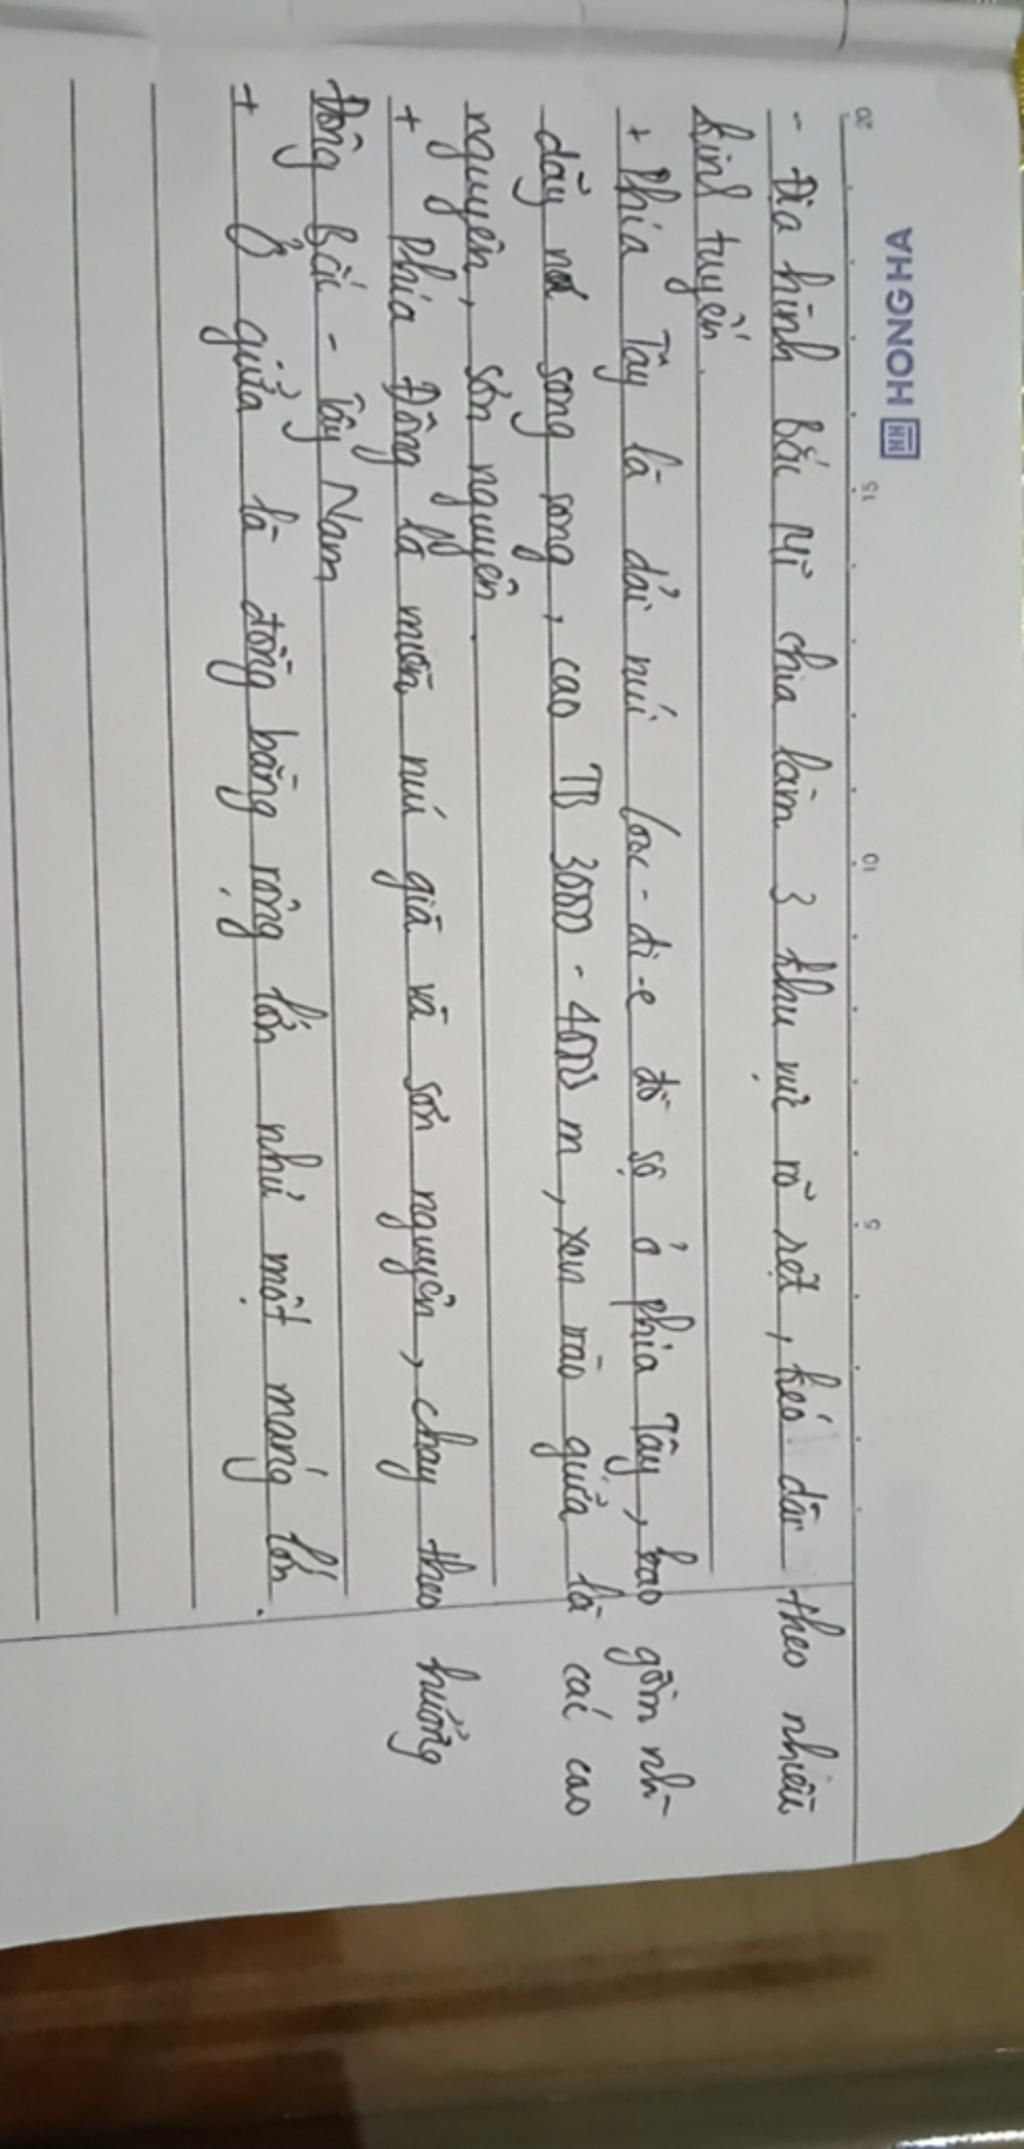 HONG HA HH
20 15 10 5
- Địa hình Bắc Mĩ chia làm 3 khu vực rõ rệt, kéo dài theo nhiều
kinh tuyến.
+ Phía Tây là dải núi Cooc-đi-e đồ sộ ở phía Tây, bao gồm nh~
dãy núi song song, cao TB 3000 - 4000 m, xen vào giữa là các cao
nguyên, sơn nguyên.
+ Phía Đông là miền núi già và sơn nguyên, chạy theo hướng
Đông Bắc - Tây Nam
+ Ở giữa là đồng bằng rộng lớn như một máng lớn.